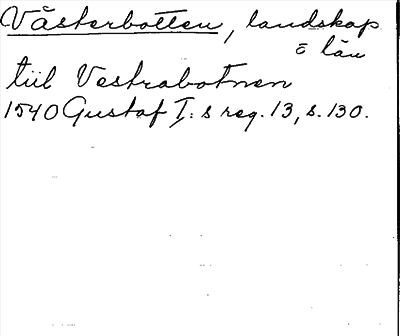 Västerbotten, landskap
o län
tiil Vestrabotnen
1540 Gustaf I:s reg. 13, s. 130.